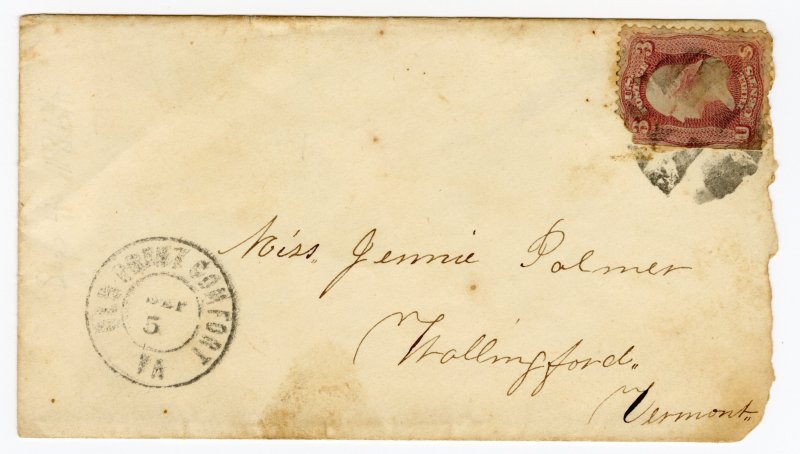 Miss. Jennie Palmer
Wallingford.
Vermont.
OLD POINT COMFORT
SEP
5
VA
3 3
U S